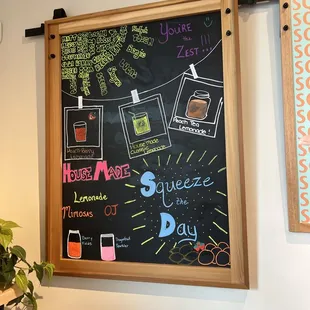 You're the
ZEST!!!
Peach Berry
Lemonade
House made
Peach Tea
Lemonade!
HOUSE MADE
Lemonade
Mimosas OJ
Squeeze
the
Day